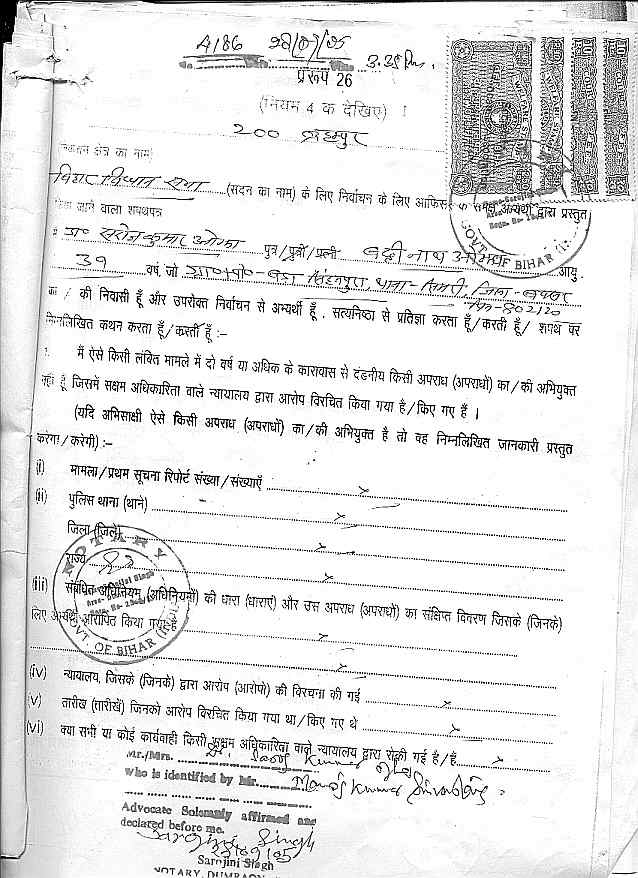 4186
प्ररूप 26
(नियम 4 क देखिए)
200
क्षेत्र का नाम)
बिहार विधान सभा (सदन का नाम) के लिए निर्वाचन के लिए आफिसर के समक्ष अभ्यर्थी द्वारा प्रस्तुत
किया जाने वाला शपथपत्र
सरोज कुमार ओझा पुत्र/पुत्री/पत्नी बद्री नाथ ओझा आयु
39 वर्ष, जो थाना- सिमरी, जिला- बक्सर
पिन-802120
का / की निवासी हूँ और उपरोक्त निर्वाचन से अभ्यर्थी हूँ, सत्यनिष्ठा से प्रतिज्ञा करता हूँ/करती हूँ/ शपथ पर
निम्नलिखित कथन करता हूँ/करती हूँ :-
मैं ऐसे किसी लंबित मामले में दो वर्ष या अधिक के कारावास से दंडनीय किसी अपराध (अपराधों) का/की अभियुक्त
नहीं हूँ जिसमें सक्षम अधिकारिता वाले न्यायालय द्वारा आरोप विरचित किया गया है/किए गए हैं ।
(यदि अभिसाक्षी ऐसे किसी अपराध (अपराधों) का/की अभियुक्त है तो वह निम्नलिखित जानकारी प्रस्तुत
करेगा/करेगी) :-
(i) मामला/प्रथम सूचना रिपोर्ट संख्या/संख्याएँ x
(ii) पुलिस थाना (थाने) x
जिला (जिले) x
राज्य x
(iii) संबंधित अधिनियम (अधिनियमों) की धारा (धाराएं) और उस अपराध (अपराधों) का संक्षिप्त विवरण जिसके (जिनके)
लिए अभ्यर्थी आरोपित किया गया है x
x
(iv) न्यायालय, जिसके (जिनके) द्वारा आरोप (आरोपों) की विरचना की गई x
(v) तारीख (तारीखें) जिनको आरोप विरचित किया गया था/किए गए थे x
(vi) क्या सभी या कोई कार्यवाही किसी सक्षम अधिकारिता वाले न्यायालय द्वारा रोकी गई है/हैं x
NOTARY
GOVT. OF BIHAR
GOVT. OF BIHAR
Mr./Mrs. Saroj Kumar Ojha
who is identified by Mr. Manoj Kumar Srivastava
Advocate Solemnly affirmed and
declared before me.
Sarojini Singh
Sarojini Singh
NOTARY, DUMRAON